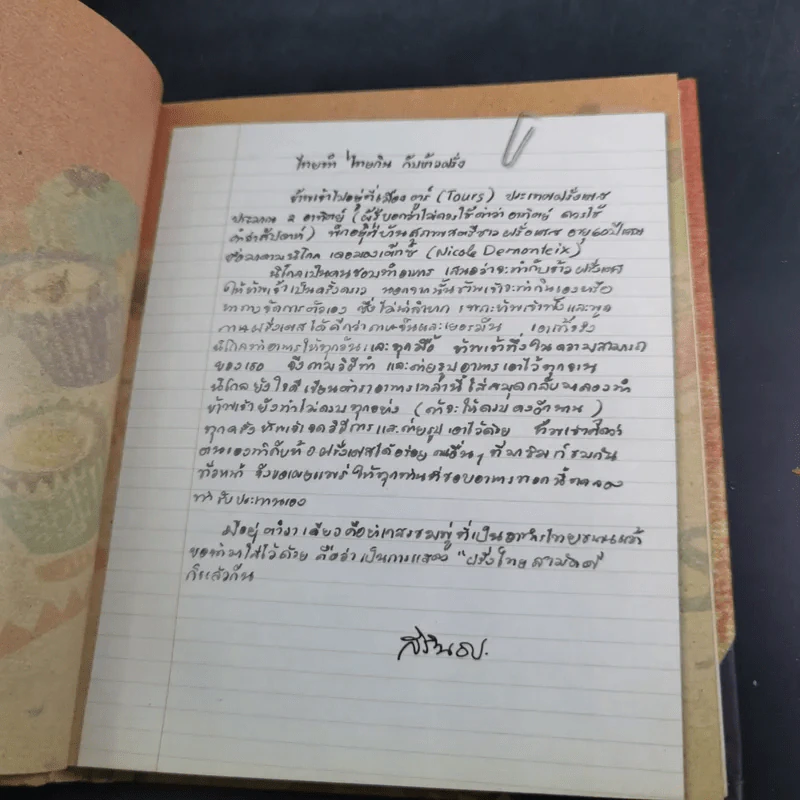 ไทยทำ ไทยกิน กับข้าวฝรั่ง
ข้าพเจ้าไปอยู่ที่เมือง ตูร์ (Tours) ประเทศฝรั่งเศส
ประมาณ ๓ อาทิตย์ (ผู้รู้บอกว่าไม่ควรใช้คำว่าอาทิตย์ ควรใช้
คำว่าสัปดาห์) พักอยู่ที่บ้านสุภาพสตรีชาวฝรั่งเศส อายุ ๖๐ ปีเศษ
ชื่อมาดามนิโกล (Nicole Demonteix)
นิโกลเป็นคนชอบทำอาหาร เสนอว่าจะทำกับข้าวฝรั่งเศส
ให้ข้าพเจ้าเป็นครั้งคราว นอกจากนั้นข้าพเจ้าจะทำกินเองหรือ
หาทางจัดการตัวเอง ซึ่งไม่น่าลำบาก เพราะข้าพเจ้าฟังและพูด
ภาษาฝรั่งเศสได้ดีกว่าภาษาจีนและเยอรมัน เอาเข้าจริง
นิโกลทำอาหารให้ทุกวันและทุกมื้อ ข้าพเจ้าทึ่งในความสามารถ
ของเธอ จึงถามวิธีทำ และถ่ายรูปอาหารเอาไว้ทุกจาน
นิโกลยังใจดีเขียนตำราอาหารเหล่านี้ใส่สมุด กลับมาลองทำ
ข้าพเจ้ายังทำไม่ครบทุกอย่าง (ถ้าจะให้ครบคงอีกนาน)
ทุกครั้งข้าพเจ้าจดวิธีการและถ่ายรูปเอาไว้ด้วย ข้าพเจ้าคิดว่า
ตนเองทำกับข้าวฝรั่งเศสได้อร่อย คนอื่นๆ ที่มาชิมก็ชมกัน
ทั่วหน้า จึงขอเผยแพร่ให้ทุกท่านที่ชอบอาหารพวกนี้ทดลอง
ทำรับประทานเอง
มีอยู่ตำราเดียวคือ ที่เป็นอาหารไทยขนานแท้
ขอนำมาใส่ไว้ด้วย ถือว่าเป็นการแสดง "ฝรั่งไทยสามัคคี
ก็แล้วกัน
สิรินธร.